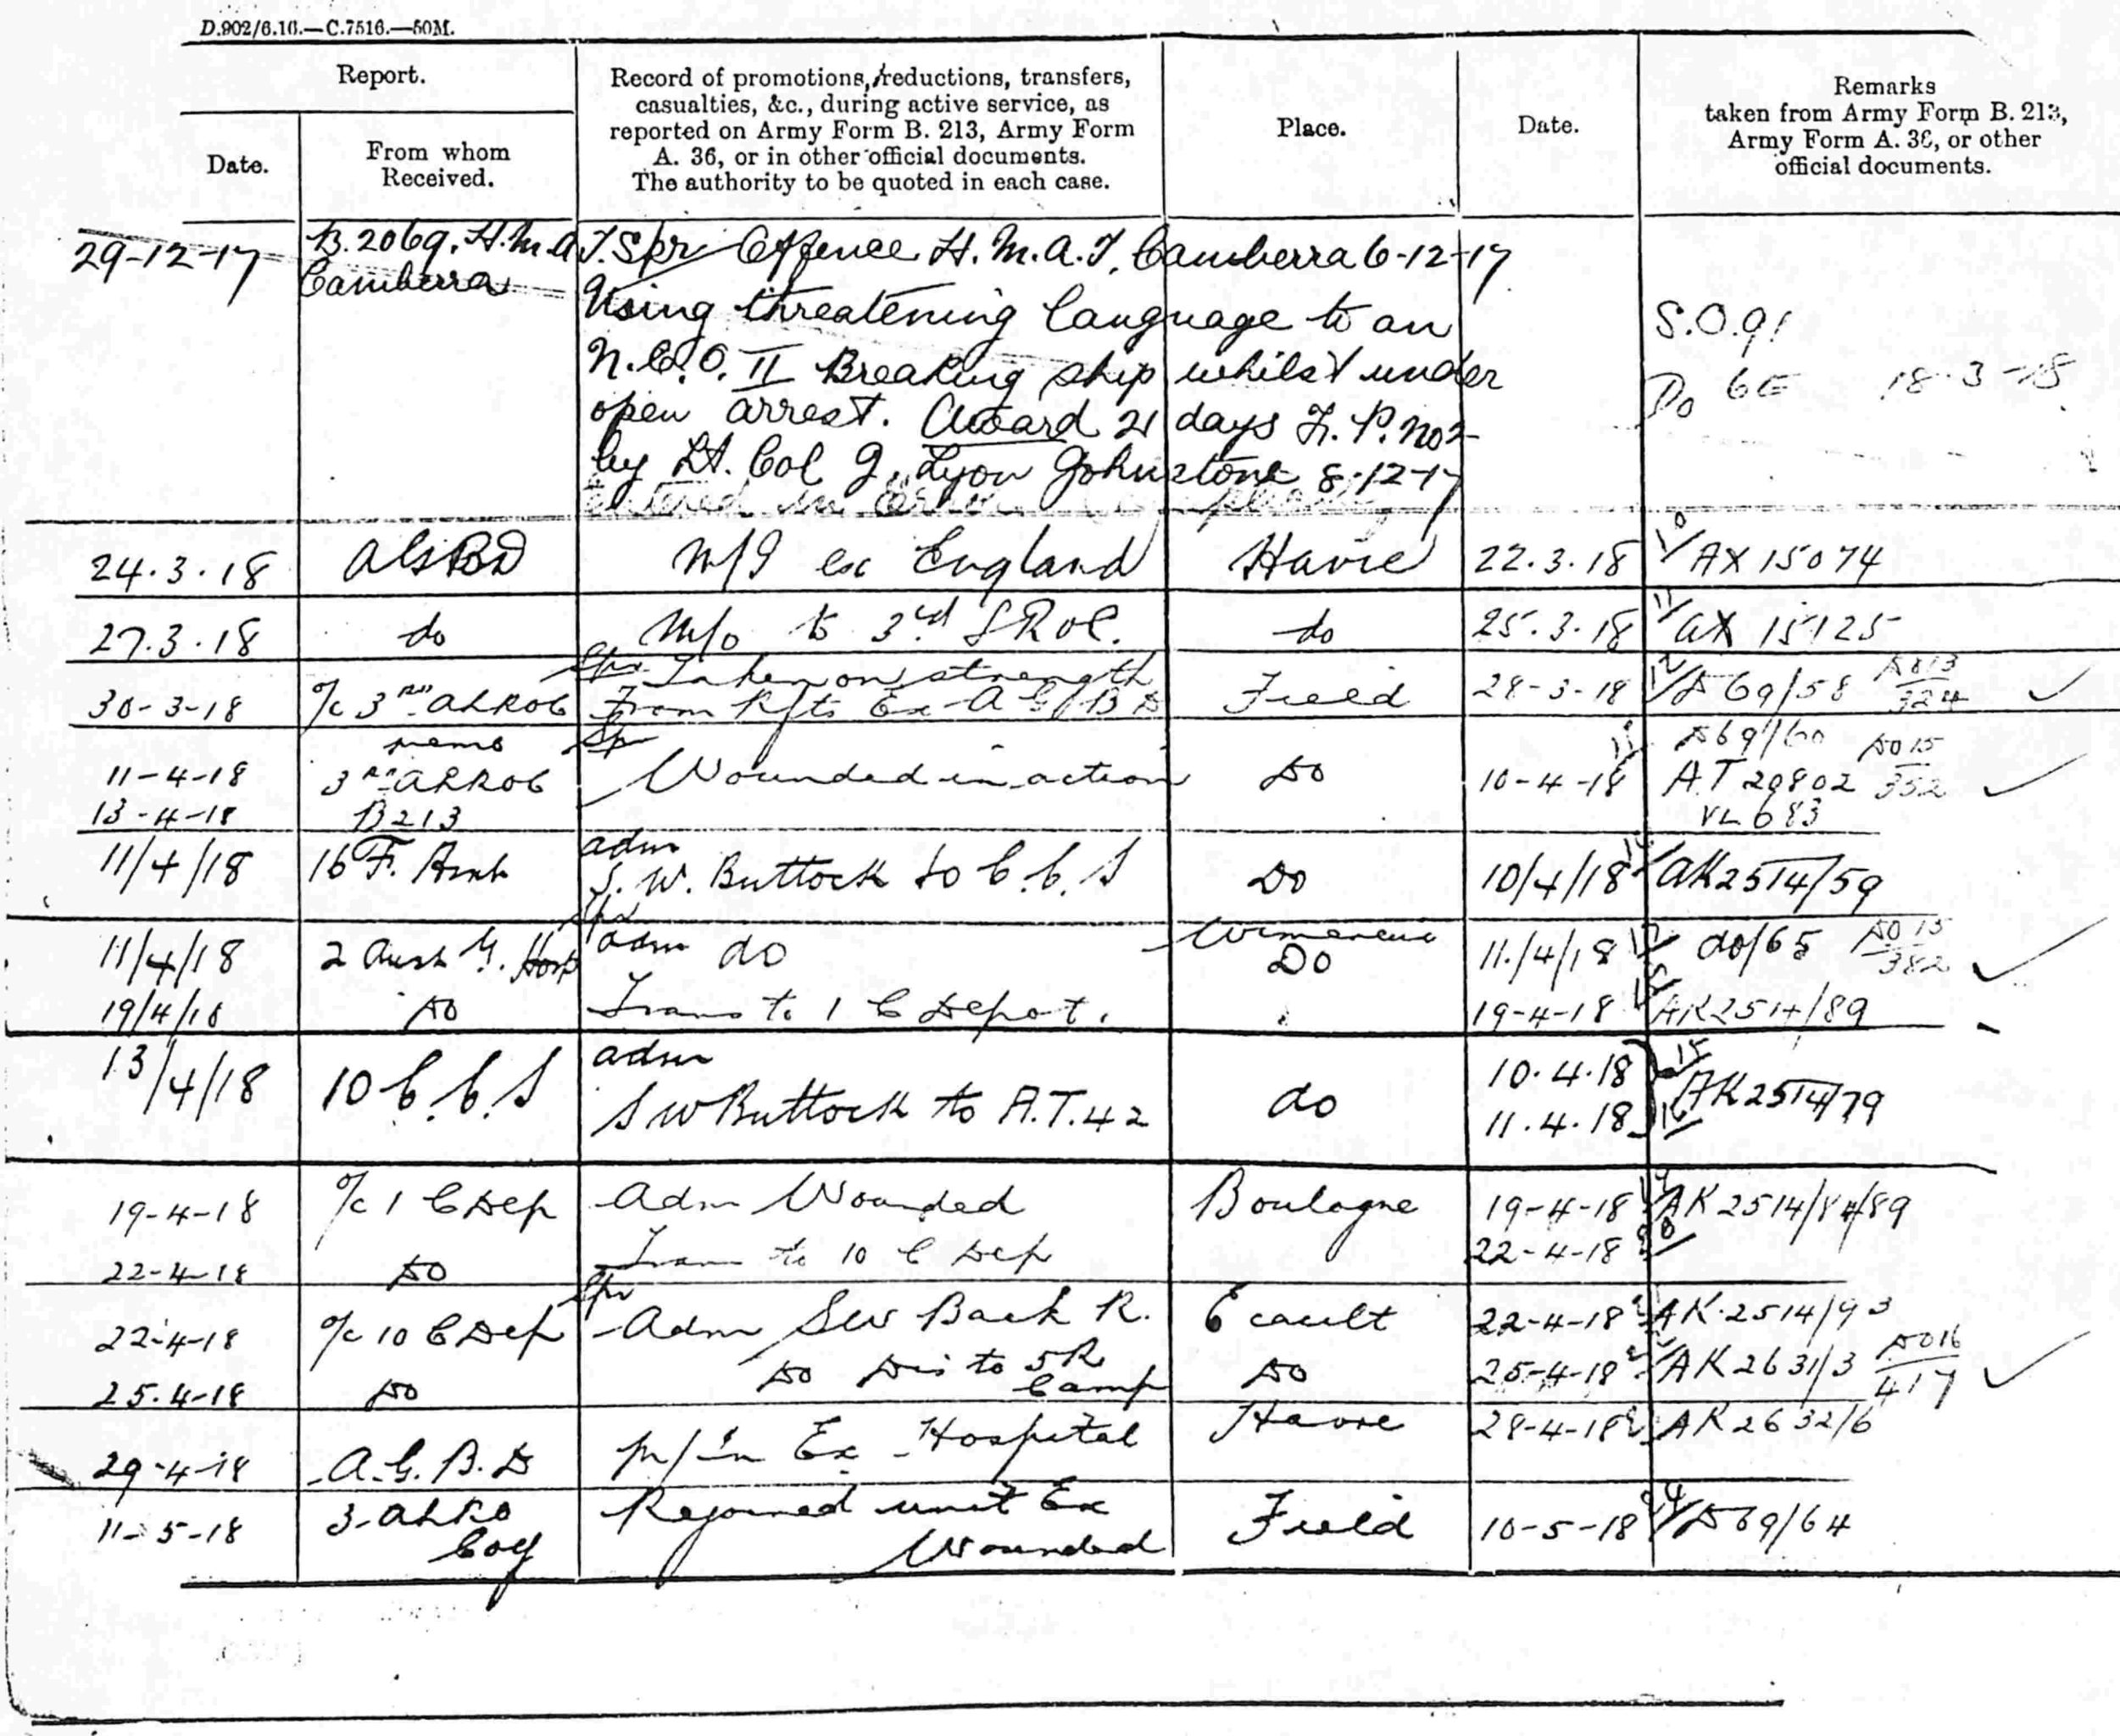 D.902/6.16.—C.7516.—50M.
Report.
Date.
From whom
Received.
Record of promotions, reductions, transfers,
casualties, &c., during active service, as
reported on Army Form B. 213, Army Form
A. 36, or in other official documents.
The authority to be quoted in each case.
Place.
Date.
Remarks
taken from Army Form B. 213,
Army Form A. 36, or other
official documents.
29-12-17 B.2069. H.M.A.T. Spr Offence H.M.A.T. Camberra 6-12-17
Camberra Using threatening language to an S.O.91
N.C.O. II Breaking ship whilst under Do 6E 18-3-18
open arrest. Award 21 days F.P. No 2
by Lt. Col G. Lyon Johnstone 8-12-17
entered in error
24.3.18 AGBD M/I ex England Havre 22.3.18 10/ AX 15074
27.3.18 do M/o to 3rd LROC. do 25.3.18 11/ AX 15125
Spr Taken on strength
30-3-18 O/c 3rd ALROC From R/fts Ex A G B D Field 28-3-18 12/ D69/58 DO13/324
memo Spr D69/60 DO15
11-4-18 3rd ALROC Wounded in action Do 10-4-18 AT 20802 352
13-4-18 B213 VL 683
adm
11/4/18 16 F. Amb S.W. Buttock to C.C.S Do 10/4/18 AK2514/59
Spr Wimereux
11/4/18 2 Aust G. Hosp adm do Do 11/4/18 17/ do/65 DO15/382
19/4/18 Do Trans to 1 C Depot. 19-4-18 AK2514/89
adm 10.4.18 15
13/4/18 10 C.C.S SW Buttock to A.T.42 do 11.4.18 16 AK2514/79
19-4-18 O/c 1 C Dep Adm Wounded Boulogne 19-4-18 AK 2514/84/89
22-4-18 Do Trans to 10 C Dep 22-4-18
Spr
22-4-18 O/c 10 C Dep Adm SW Back R. Ecault 22-4-18 AK 2514/93
25.4-18 Do Do Dis to 5R Camp Do 25-4-18 AK 2631/3 DO16/417
29-4-18 A.G.B.D M/in Ex Hospital Havre 28-4-18 AK 2632/6
11-5-18 3-ALRO Rejoined unit Ex Field 10-5-18 24/ D69/64
Coy Wounded